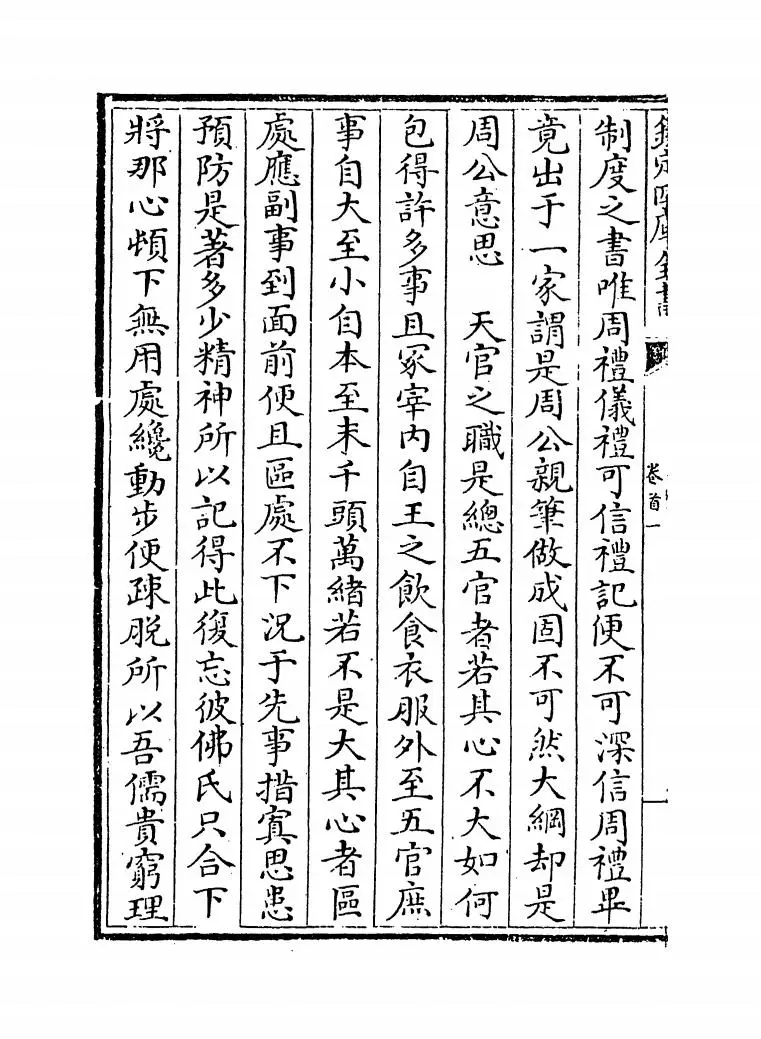 欽定四庫全書
卷首一
制度之書唯周禮儀禮可信禮記便不可深信周禮畢
竟出于一家謂是周公親筆做成固不可然大綱却是
周公意思　天官之職是總五官者若其心不大如何
包得許多事且冢宰内自王之飲食衣服外至五官庶
事自大至小自本至末千頭萬緒若不是大其心者區
處應副事到面前便且區處不下況于先事措寘思患
預防是著多少精神所以記得此復忘彼佛氏只合下
將那心頓下無用處纔動步便疎脱所以吾儒貴窮理